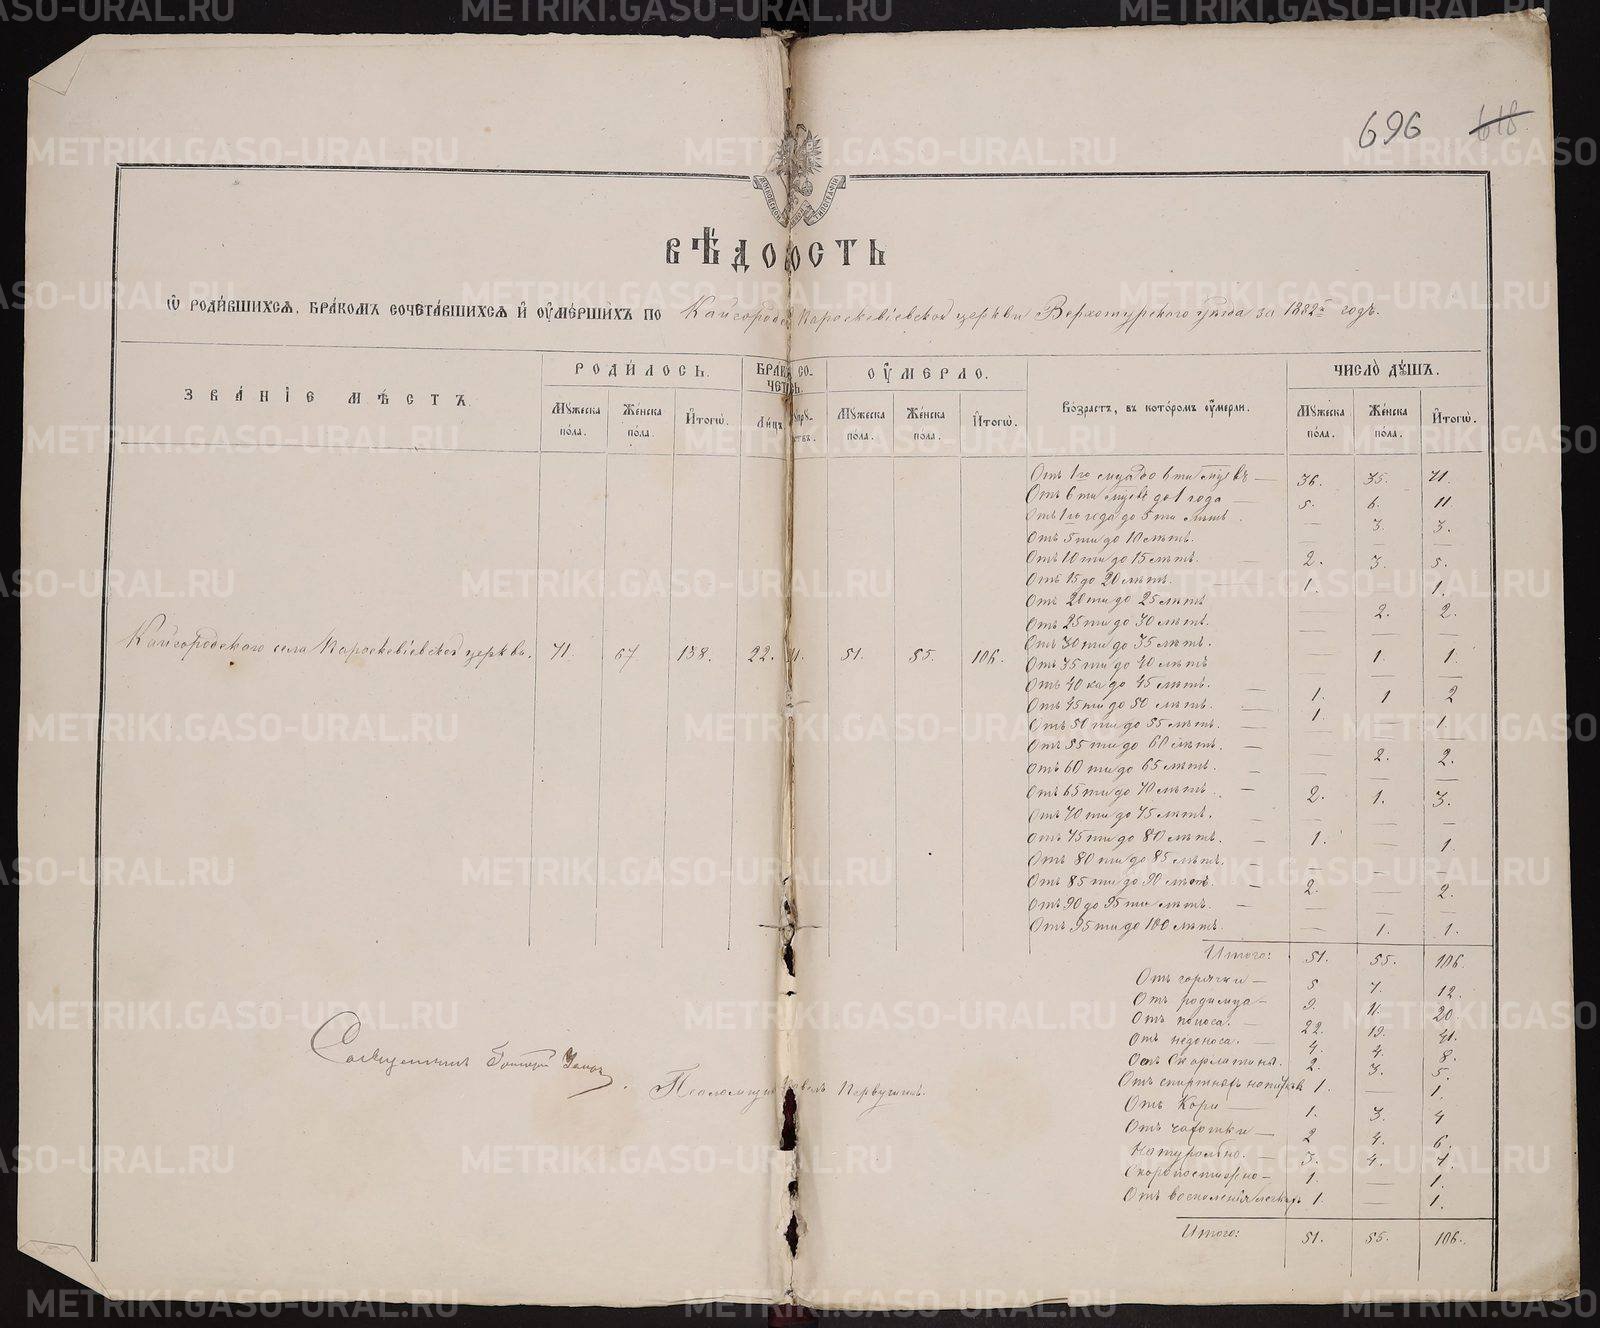 696 618
МОСКОВСКОЙ СѴНОД. ТИПОГРАФІИ
ВѢДОМОСТЬ
Ѡ РОДИВШИХСЯ, БРАКОМЪ СОЧЕТАВШИХСЯ И ОУМЕРШИХЪ ПО Кайгородской Параскевіевской церкви Верхотурскаго уѣзда за 1882й годъ.
ЗВАНІЕ МѢСТЪ. РОДИЛОСЬ. БРАКОМЪ СОЧЕТ. ОУМЕРЛО. Возрастъ, въ которомъ оумерли. ЧИСЛО ДУШЪ.
Мужеска пола. Женска пола. Итогѡ. Лицъ. Мужеска пола. Женска пола. Итогѡ. Мужеска пола. Женска пола. Итогѡ.
Кайгородскаго села Параскевіевской церкви. 71. 67. 138. 22. 11. 51. 55. 106.
Отъ 1го мѣс до 6ти мѣсвъ — 36. 35. 71.
Отъ 6ти мѣсвъ до 1 года — 5. 6. 11
Отъ 1го года до 5ти лѣтъ. — 3. 3.
Отъ 5ти до 10 лѣтъ.
Отъ 10ти до 15 лѣтъ. — 2. 3. 5.
Отъ 15 до 20 лѣтъ. — 1. 1.
Отъ 20ти до 25 лѣтъ — 2. 2.
Отъ 25ти до 30 лѣтъ.
Отъ 30ти до 35 лѣтъ. — 1. 1.
Отъ 35ти до 40 лѣтъ
Отъ 40ка до 45 лѣтъ. — 1. 1 2
Отъ 45ти до 50 лѣтъ. — 1. — 1.
Отъ 50ти до 55 лѣтъ. —
Отъ 55ти до 60 лѣтъ. — 2. 2.
Отъ 60ти до 65 лѣтъ. —
Отъ 65ти до 70 лѣтъ. — 2. 1. 3.
Отъ 70ти до 75 лѣтъ. —
Отъ 75ти до 80 лѣтъ. — 1. — 1.
Отъ 80ти до 85 лѣтъ. —
Отъ 85ти до 90 лѣтъ. — 2. — 2.
Отъ 90 до 95ти лѣтъ. —
Отъ 95ти до 100 лѣтъ. — 1. 1.
Итого: 51. 55. 106.
Отъ горячки — 5 7. 12.
Отъ родимца — 9. 11. 20.
Отъ поноса. — 22. 19. 41.
Отъ недоноса. — 4. 4. 8.
Отъ Скарлатины. 2. 3. 5.
Отъ спиртныхъ напитковъ 1. — 1.
Отъ Кори — 1. 3. 4
Отъ чахотки — 2 4. 6.
Натурально. — 3. 4. 7.
Скоропостижно — 1. — 1.
Отъ воспаленія легкихъ 1. — 1.
Итого: 51. 55. 106.
Священникъ
Псаломщикъ Павелъ Первушинъ.
METRIKI.GASO-URAL.RU